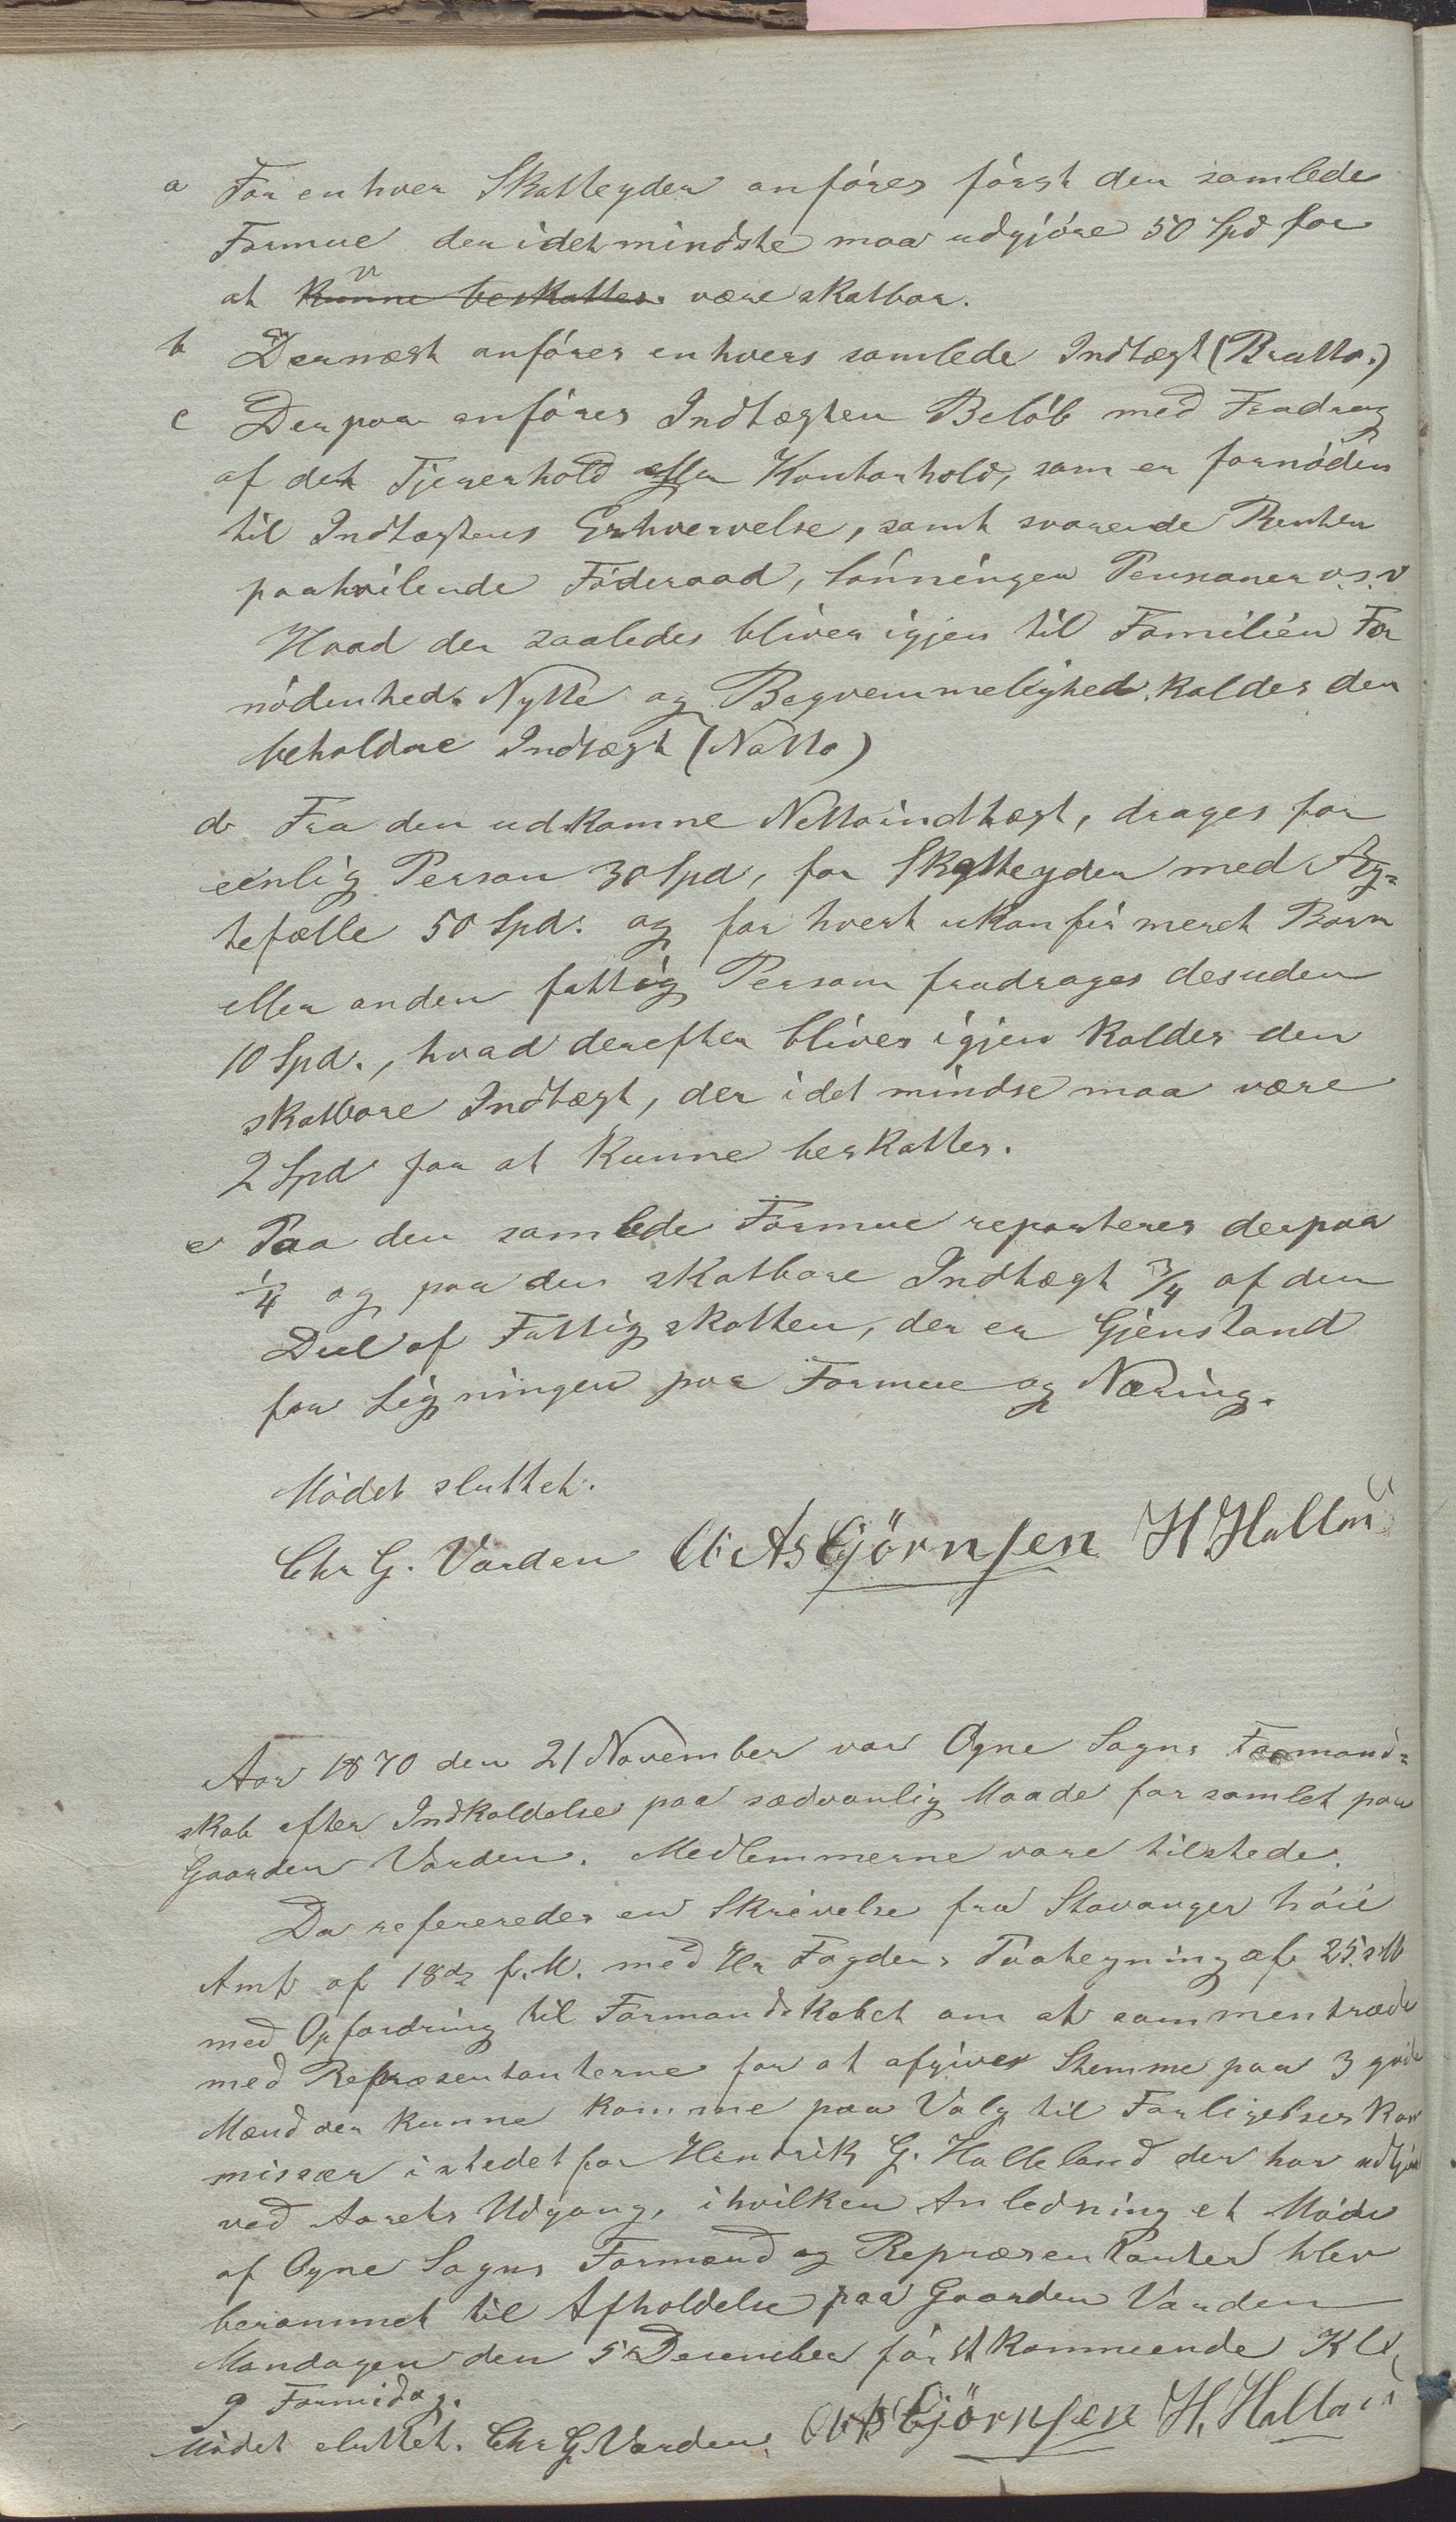 a For enhver Skatteyder anføres først den samlede
Formue der idetmindste maa udgjøre 50 Spd for
at kunne beskattes være skatbar.
b Dernæst anføres enhvers samlede Indtægt (Brutto.)
c Derpaa anføres Indtægten Beløb med Fradrag
af det Tjenerhold eller Kontorhold, som er fornøden
til Indtægtens Erhvervelse, samt svarende Renter
paahvilende Føderaad, Lønninger Pensioner o.s.v
Hvad der saaledes bliver igjen til Familien For
nødenhed. Nytte og Beqvemmelighed kaldes den
beholdne Indtægt (Netto)
d Fra den udkomne Nettoindtægt, drages for
eenlig Person 30 Spd, for Skatteyder med Æg=
tefælle 50 Spd. og for hvert ukonfirmeret Barn
eller anden fattig Person fradrages desuden
10 Spd., hvad derefter bliver igjen kaldes den
skatbare Indtægt, der idet mindse maa være
2 Spd for at kunne beskattes.
e Paa den samlede Formue reparteres derpaa
1/4 og paa den skatbare Indtægt 3/4 af den
Deel af Fattigskatten, der er Gjenstand
for Ligningen paa Formue og Næring.
Mødet sluttet.
Chr G. Varden Asbjørnsen H. Hallan
Aar 1870 den 21 November var Ogne Sogns Formand=
skab efter Indkaldelse paa sædvanlig Maade forsamlet paa
Gaarden Varden. Medlemmerne vare tilstede.
Da refereredes en Skrivelse fra Stavanger høie
Amt af 18de f. M. med Hr Fogdens Paategning af 25. s M
med Opfordring til Formandskabet om at sammentræde
med Repræsentanterne for at afgiver Stemme paa 3 gode
Mænd der kunne komme paa Valg til Forligelses Kom
missær istedet for Hendrik G. Halleland der har udtjent
ved Aarets Udgang, ihvilken Anledning et Møde
af Ogne Sogns Formænd og Repræsentanter blev
berammet til Afholdelse paa Gaarden Varden
Mandagen den 5 December førstkommende Kl
9 Formidag.
Mødet sluttet. Chr G. Varden. Asbjørnsen H. Halla